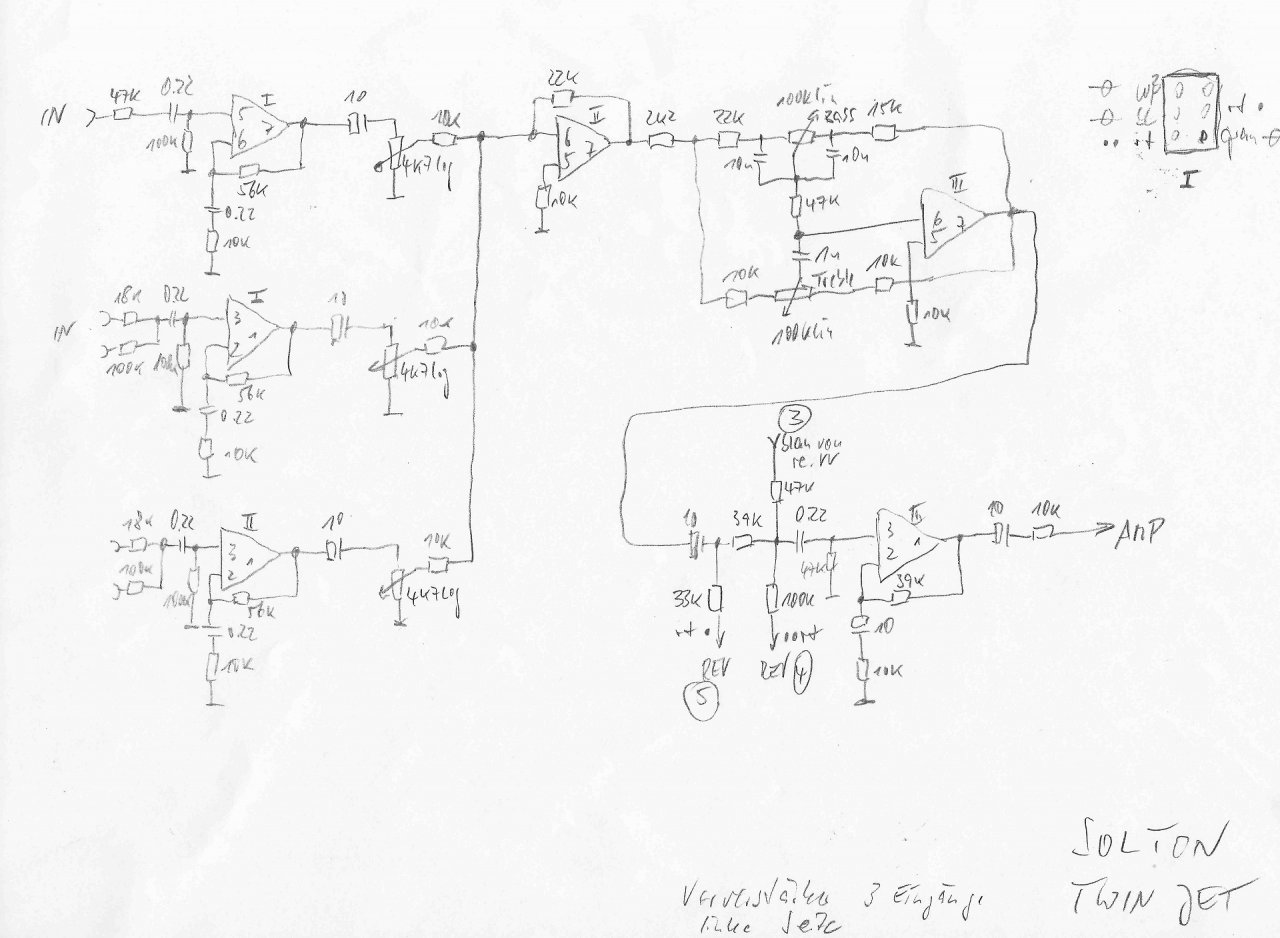 IN
47K
0.22
100K
5
6
7
I
56K
0.22
10K
10
4K7log
10K
22K
II
6
5
7
10K
2K2
22K
100Klin
Bass
15K
10n
10n
47K
1n
Treble
10K
100Klin
10K
III
6
5
7
10K
I
IN
18K
100K
0.22
100K
I
3
2
1
56K
0.22
10K
10
4K7log
10K
18K
100K
0.22
100K
II
3
2
1
56K
0.22
10K
10
4K7log
10K
3
blau von
re. VV
47K
10
39K
0.22
47K
III
3
2
1
39K
10
10K
10
10K
AMP
33K
rt
REV
5
100K
rt
REV
4
SOLTON
TWIN JET
Vorverstärker 3 Eingänge
linke Seite